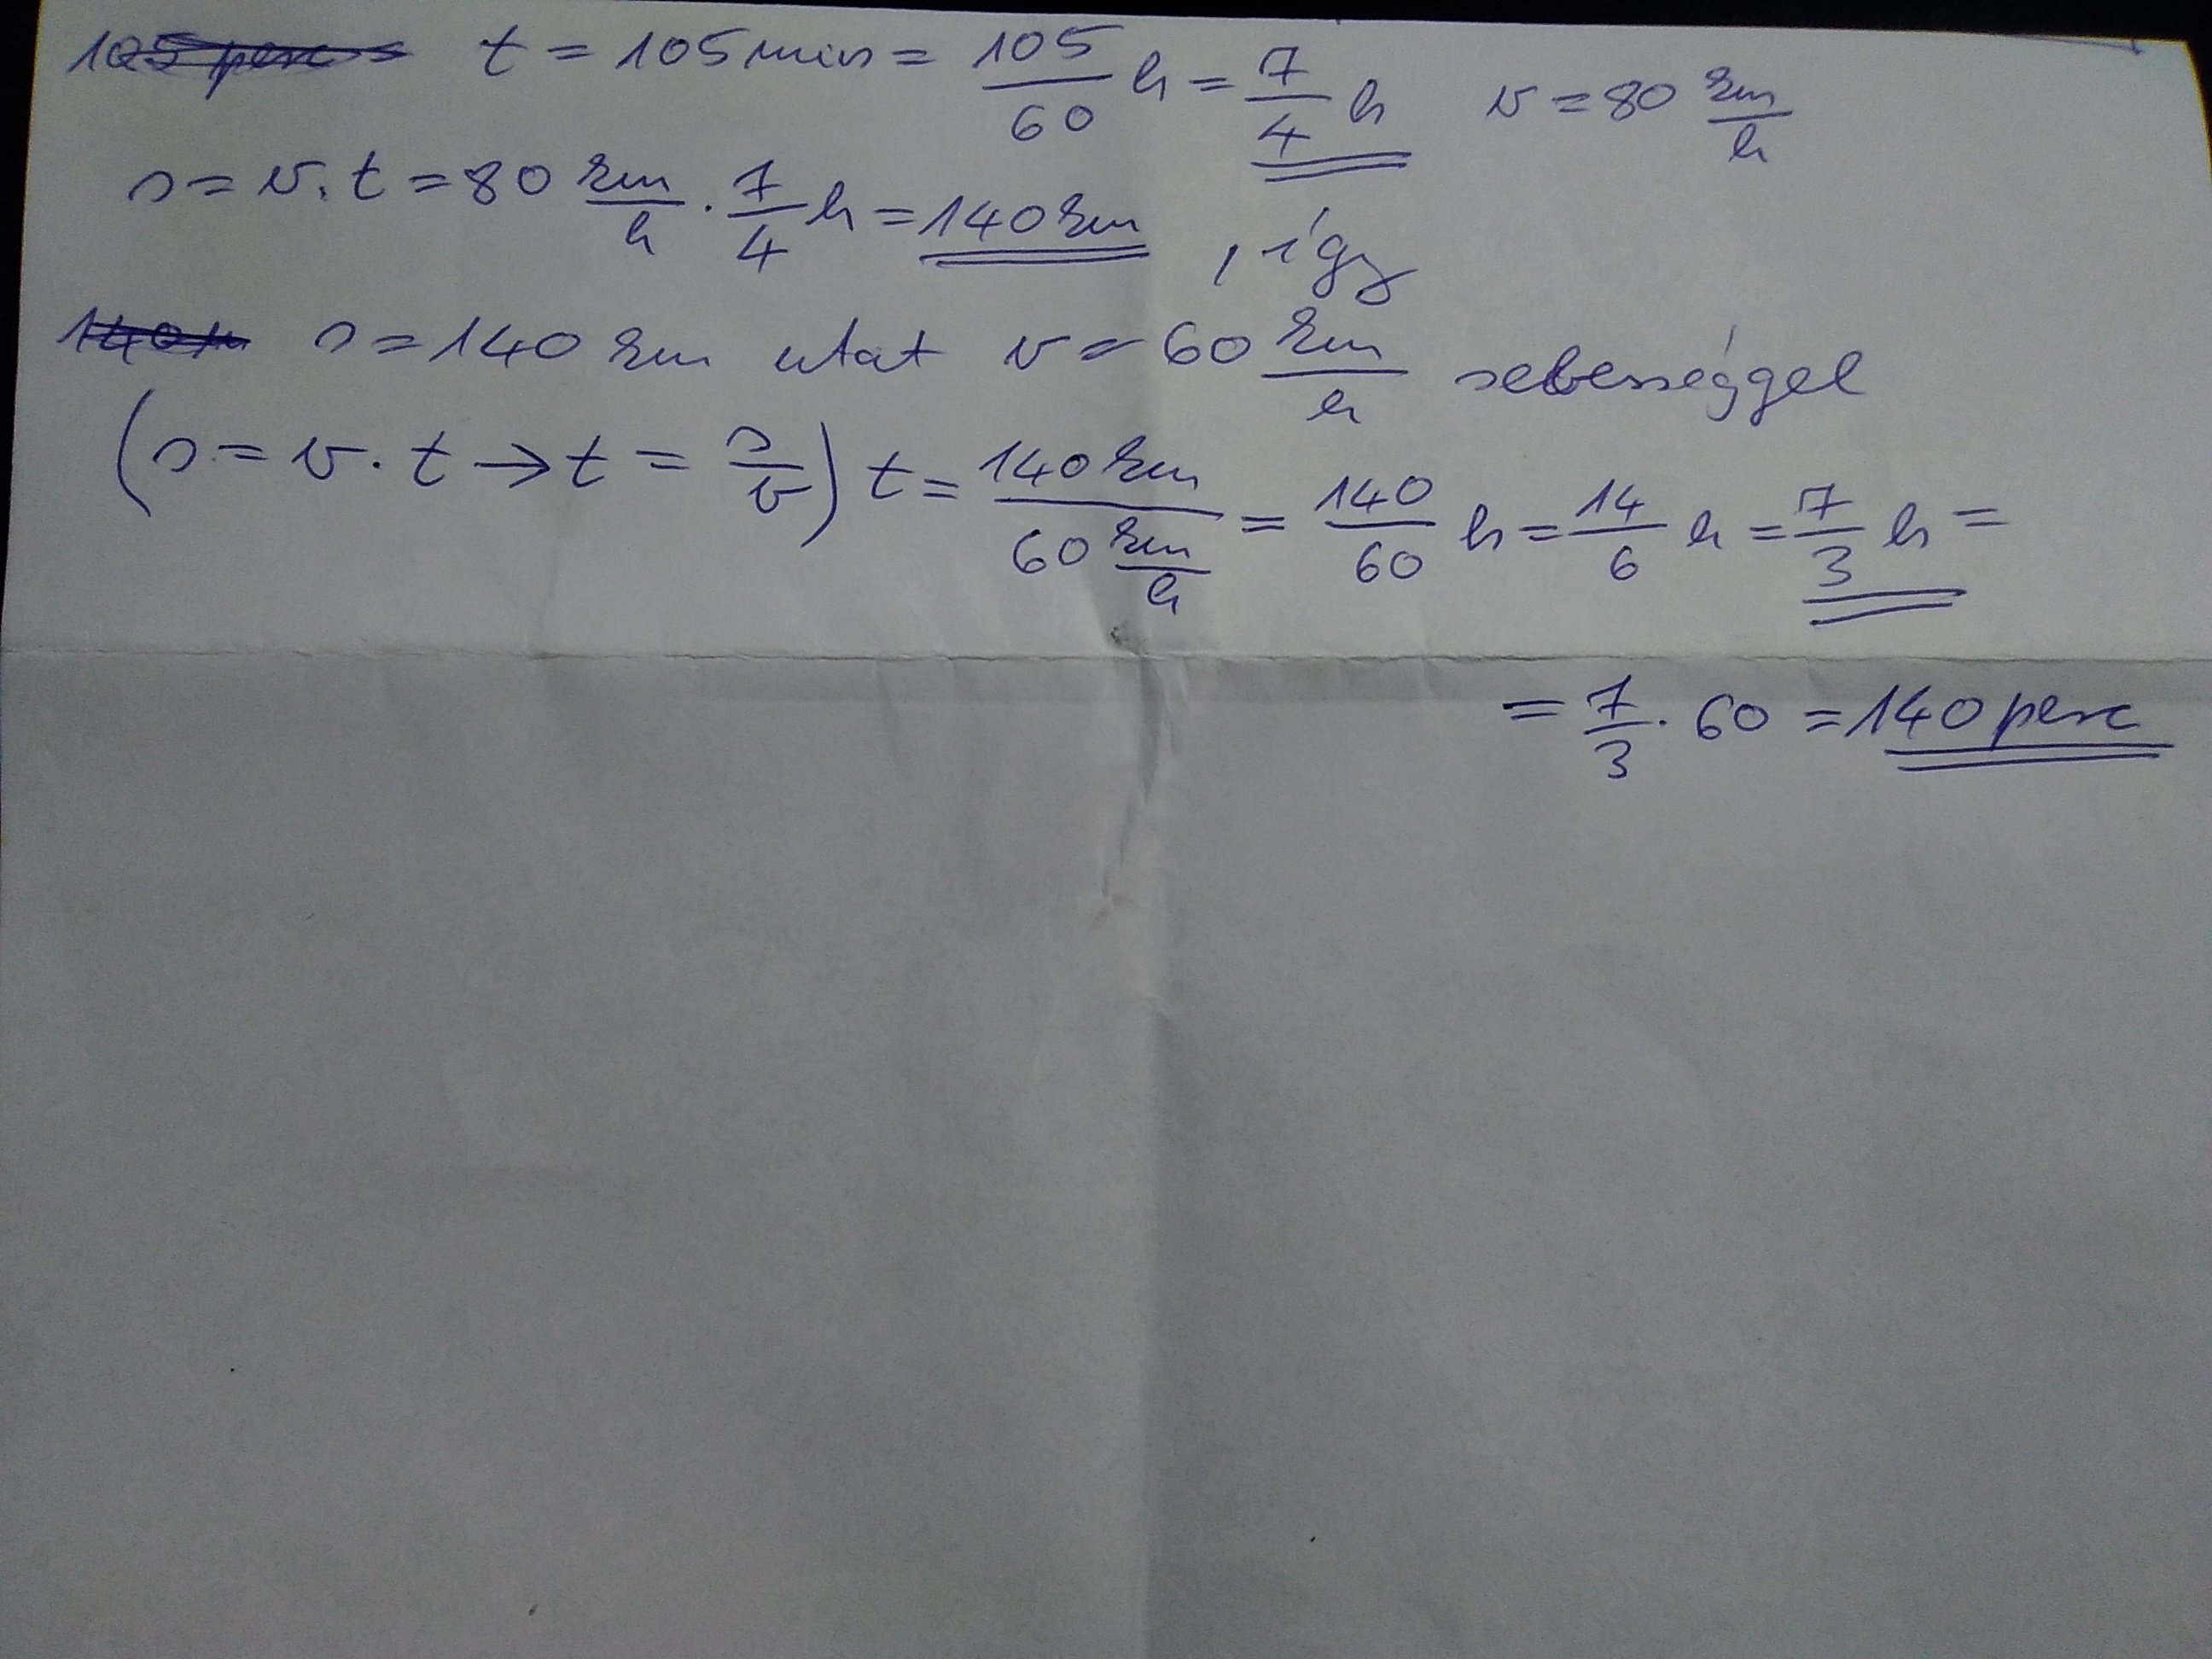 t = 105 min = 105/60 h = 7/4 h v = 80 km/h
s = v · t = 80 km/h · 7/4 h = 140 km , így
s = 140 km utat v = 60 km/h sebességgel
(s = v · t → t = s/v) t = 140 km / 60 km/h = 140/60 h = 14/6 h = 7/3 h =
= 7/3 · 60 = 140 perc